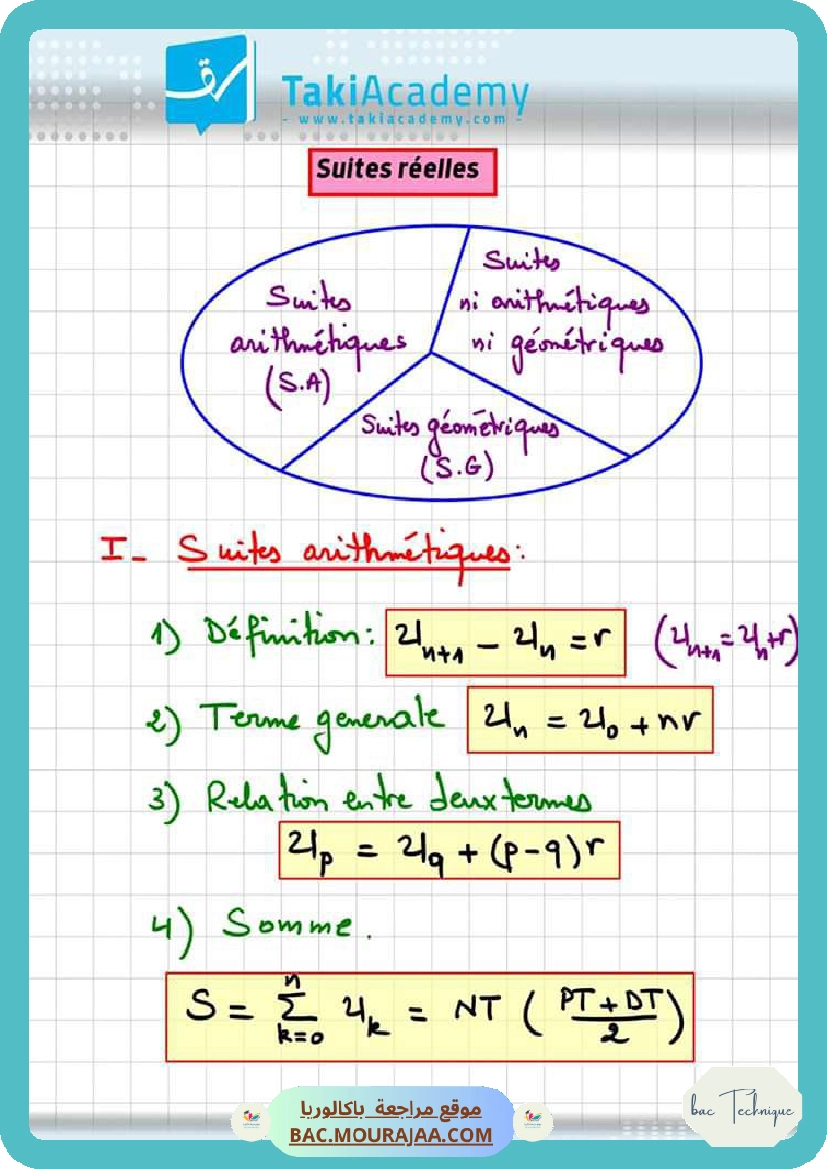 TakiAcademy
- www.takiacademy.com -
Suites réelles
Suites
arithmétiques
(S.A)
Suites
ni arithmétiques
ni géométriques
Suites géométriques
(S.G)
I- Suites arithmétiques:
1) Définition: U_{n+1} - U_n = r (U_{n+1} = U_n + r)
2) Terme generale U_n = U_0 + nr
3) Relation entre deux termes
U_p = U_q + (p-q)r
4) Somme.
S = \sum_{k=0}^{n} U_k = NT ( \frac{PT + DT}{2} )
موقع مراجعة باكالوريا
BAC.MOURAJAA.COM
bac Technique